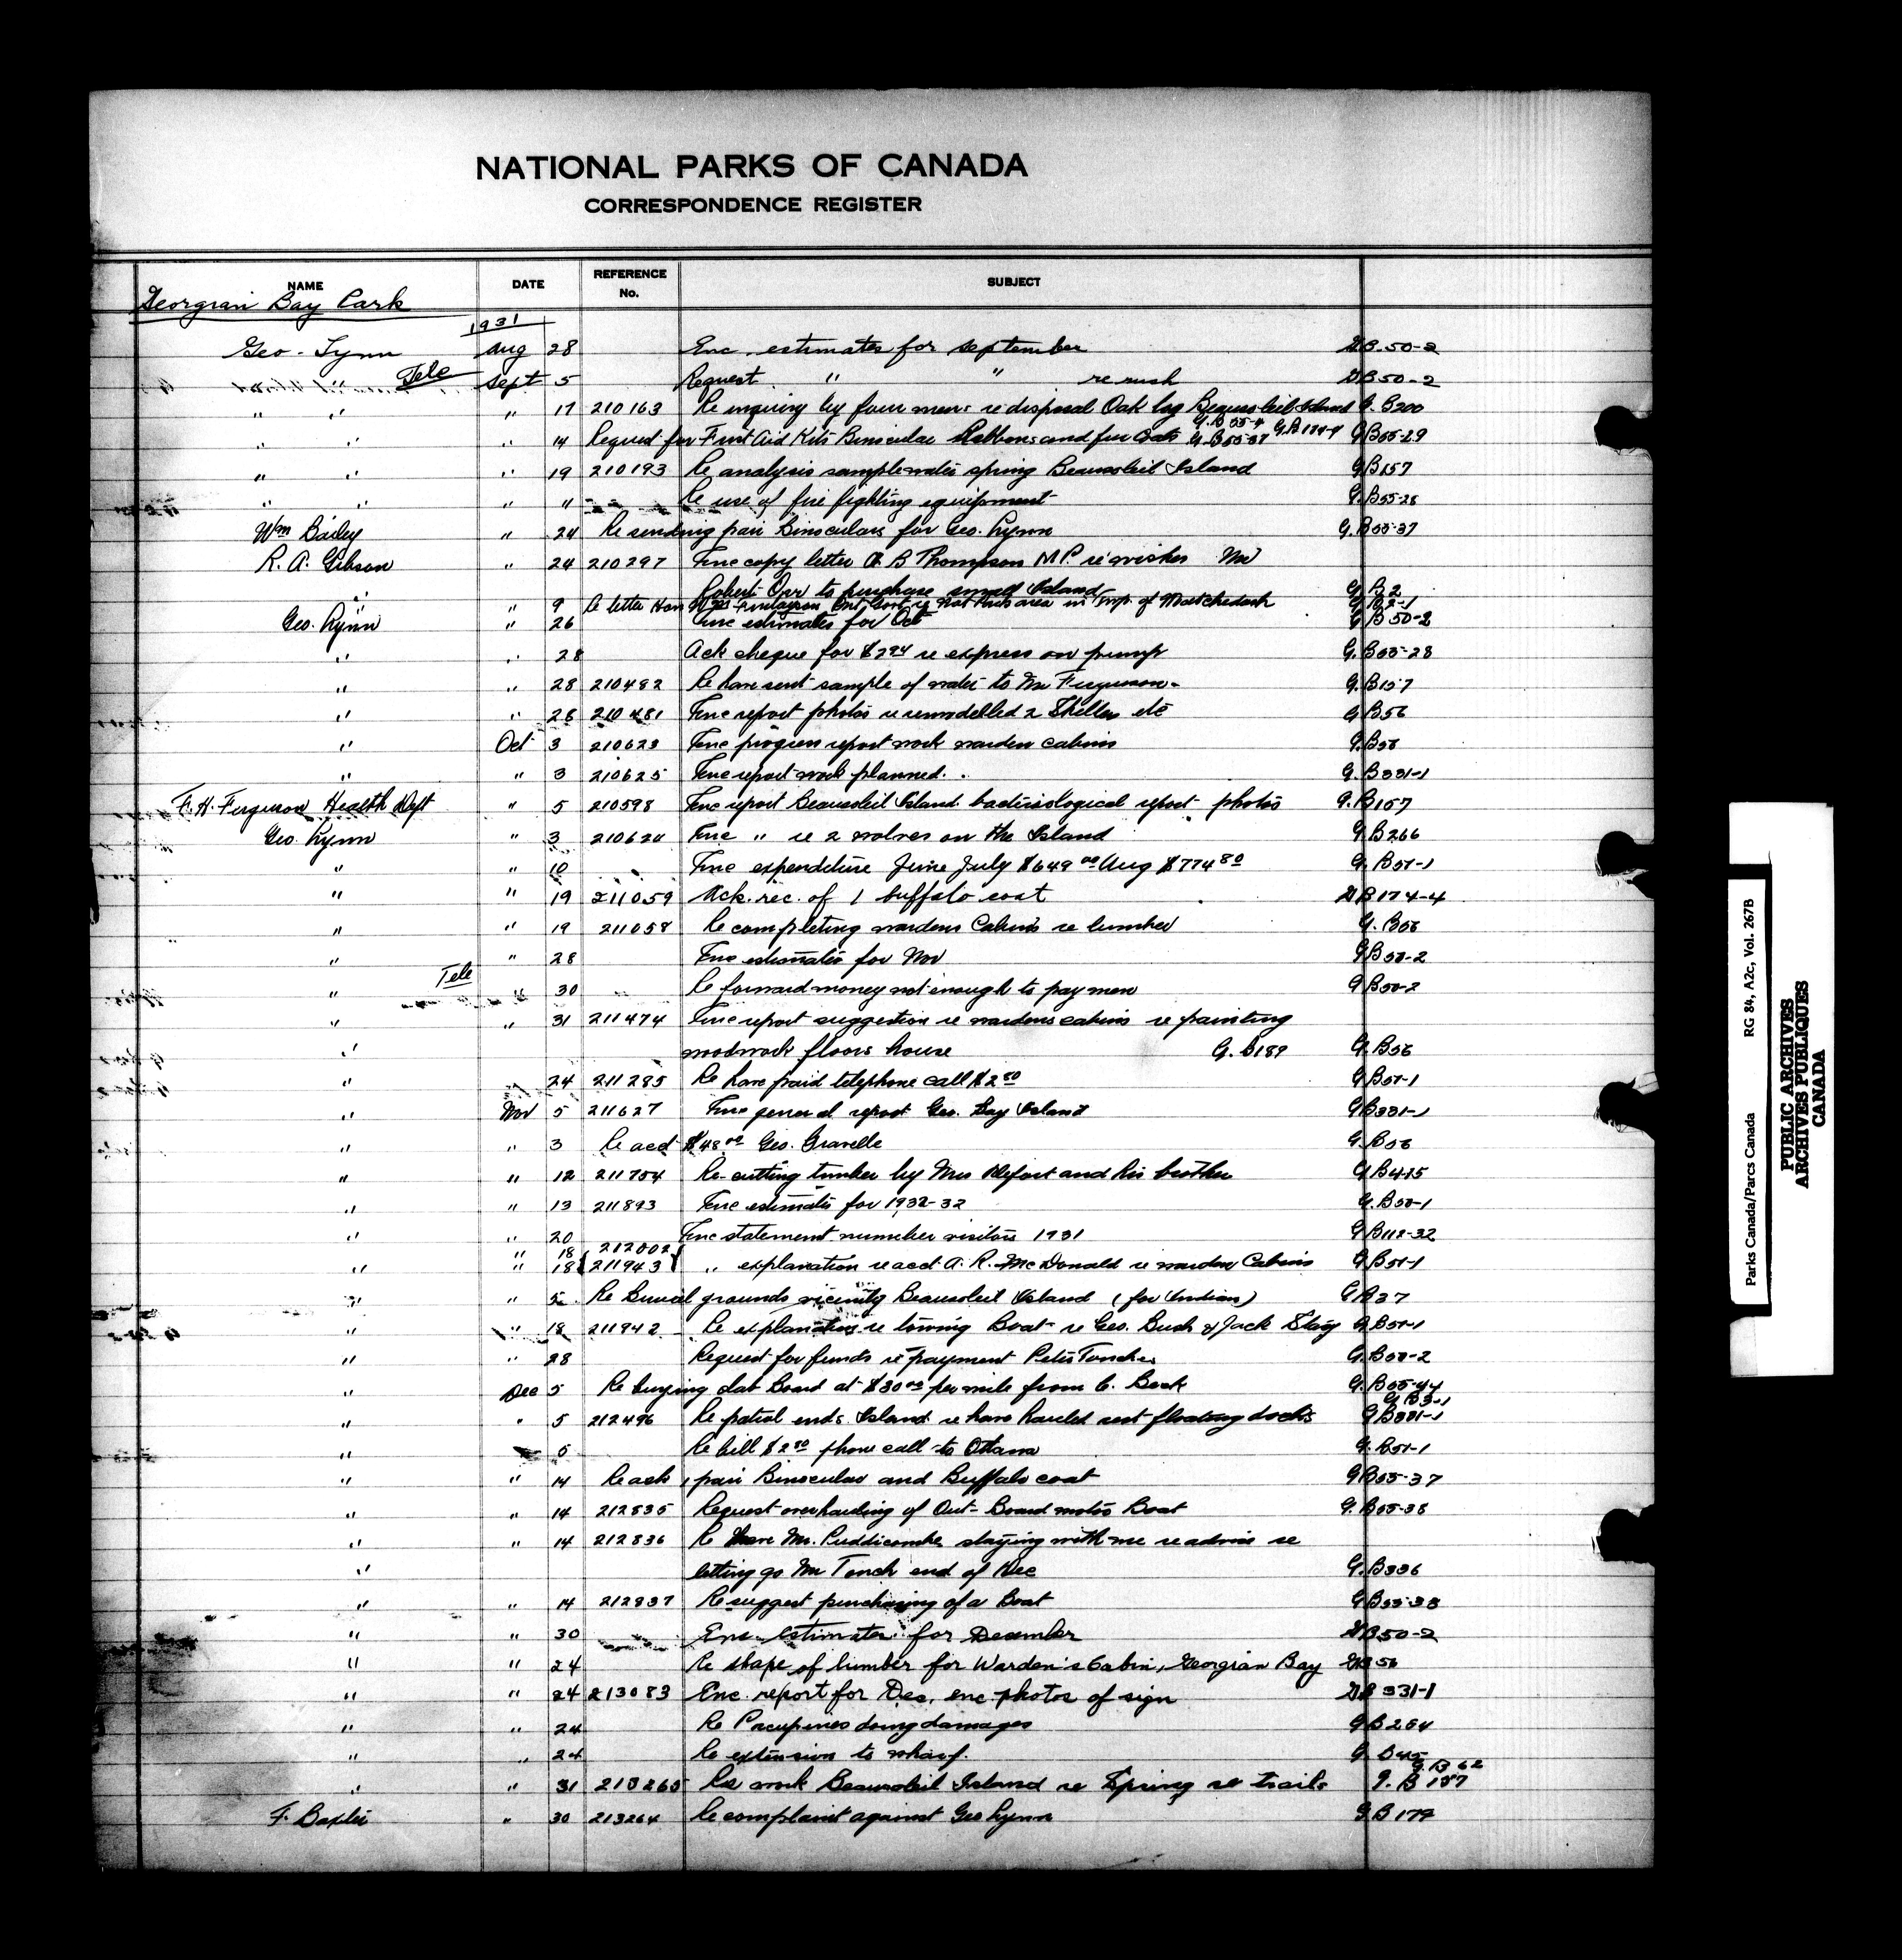 NATIONAL PARKS OF CANADA
CORRESPONDENCE REGISTER
NAME DATE REFERENCE No. SUBJECT
Georgian Bay Park
1931
Geo. Lynn Aug 28 Enc. estimates for September G.B. 50-2
" " Tele Sept 5 Request " " re rush G.B 50-2
" " " 17 210163 Re inquiry by four men re disposal Oak log Beausoleil Island G. B200
G.B 55-4 G.B 174-4
" " " 14 Request for First Aid Kits Binocular Ribbons and fur Coats G.B 55-37 G.B55-29
" " " 19 210193 Re analysis sample water spring Beausoleil Island G.B157
" " " " Re use of fire fighting equipment G.B55-28
Wm Bailey " 24 Re sending pair Binoculars for Geo. Lynn G.B55-37
R. A. Gibson " 24 210297 Enc copy letter B Thompson M.P. re wishes Mr
Robert Orr to purchase small Island G.B2
" " 9 Re letter Hon Wm Finlayson Ont. Govt re Nat Park area in Twp. of Matchedash G.B2-1
Geo. Lynn " 26 Enc estimates for Oct G.B 50-2
" " 28 Ack cheque for $2.94 re express on pump G.B55-28
" " 28 210482 Re have sent sample of water to Mr Ferguson G.B157
" " 28 210481 Enc report photos re remodelled 2 Shelter etc G.B56
" Oct 3 210623 Enc progress report work warden cabins G.B56
" " 3 210625 Enc report work planned. G.B331-1
F.H. Ferguson Health Dept " 5 210598 Enc report Beausoleil Island bacteriological report photos G.B157
Geo. Lynn " 3 210624 Enc " re 2 wolves on the Island G.B266
" " 10 Enc expenditure June July $649.00 Aug $774.80 G.B51-1
" " 19 211059 Ack. rec. of 1 buffalo coat G.B174-4
" " 19 211058 Re completing wardens Cabins re lumber G.B56
" " 28 Enc estimates for Nov G.B50-2
" Tele " 30 Re forward money not enough to pay men G.B50-2
" " 31 211474 Enc report suggestion re wardens cabins re painting
" woodwork floors house G.B189 G.B56
" 24 211285 Re have paid telephone call $2.50 G.B51-1
" Nov 5 211627 Enc general report Geo. Bay Island G.B331-1
" " 3 Re acct $48.00 Geo. Gravelle G.B56
" " 12 211754 Re cutting timber by Mrs and his brother G.B415
" " 13 211893 Enc estimates for 1932-32 G.B50-1
" " 20 Enc statement number visitors 1931 G.B112-32
" 18 212002
" " 18 211943 " explanation re acct A. R. McDonald re warden Cabins G.B51-1
" " 5 Re Burial grounds vicinity Beausoleil Island (for Indian) G.B37
" " 18 211942 Re explanation re towing Boat re Geo. Bush & Jack G.B51-1
" " 28 Request for funds re payment Peter G.B50-2
" Dec 5 Re buying Board at $30.00 per mile from C. Beck G.B55-44
G.B3-1
" " 5 212496 Re patrol ends Island re have hauled rest floating docks G.B331-1
" " 5 Re bill $2.50 phone call to Ottawa G.B51-1
" " 14 Re ack 1 pair Binocular and Buffalo coat G.B55-37
" " 14 212835 Request overhauling of Out-Board motor Boat G.B55-38
" " 14 212836 Re have Mr. Puddicombe staying with me re advise re
" letting go Mr Tonch end of Dec G.B336
" " 14 212837 Re suggest purchasing of a Boat G.B55-38
" " 30 Enc. estimates for December G.B50-2
" " 24 Re shape of lumber for Warden's Cabin, Georgian Bay G.B 56
" " 24 213083 Enc. report for Dec. enc photos of sign G.B 331-1
" " 24 Re Porcupines doing damages G.B 264
" " 24 Re extension to wharf. G.B45
G.B 62
" " 31 213265 Re work Beausoleil Island re Spring re trails G.B 157
F. Baxter " 30 213264 Re complaint against Geo Lynn G.B 179
Parks Canada/Parcs Canada RG 84, A2c, Vol. 267B
PUBLIC ARCHIVES
ARCHIVES PUBLIQUES
CANADA